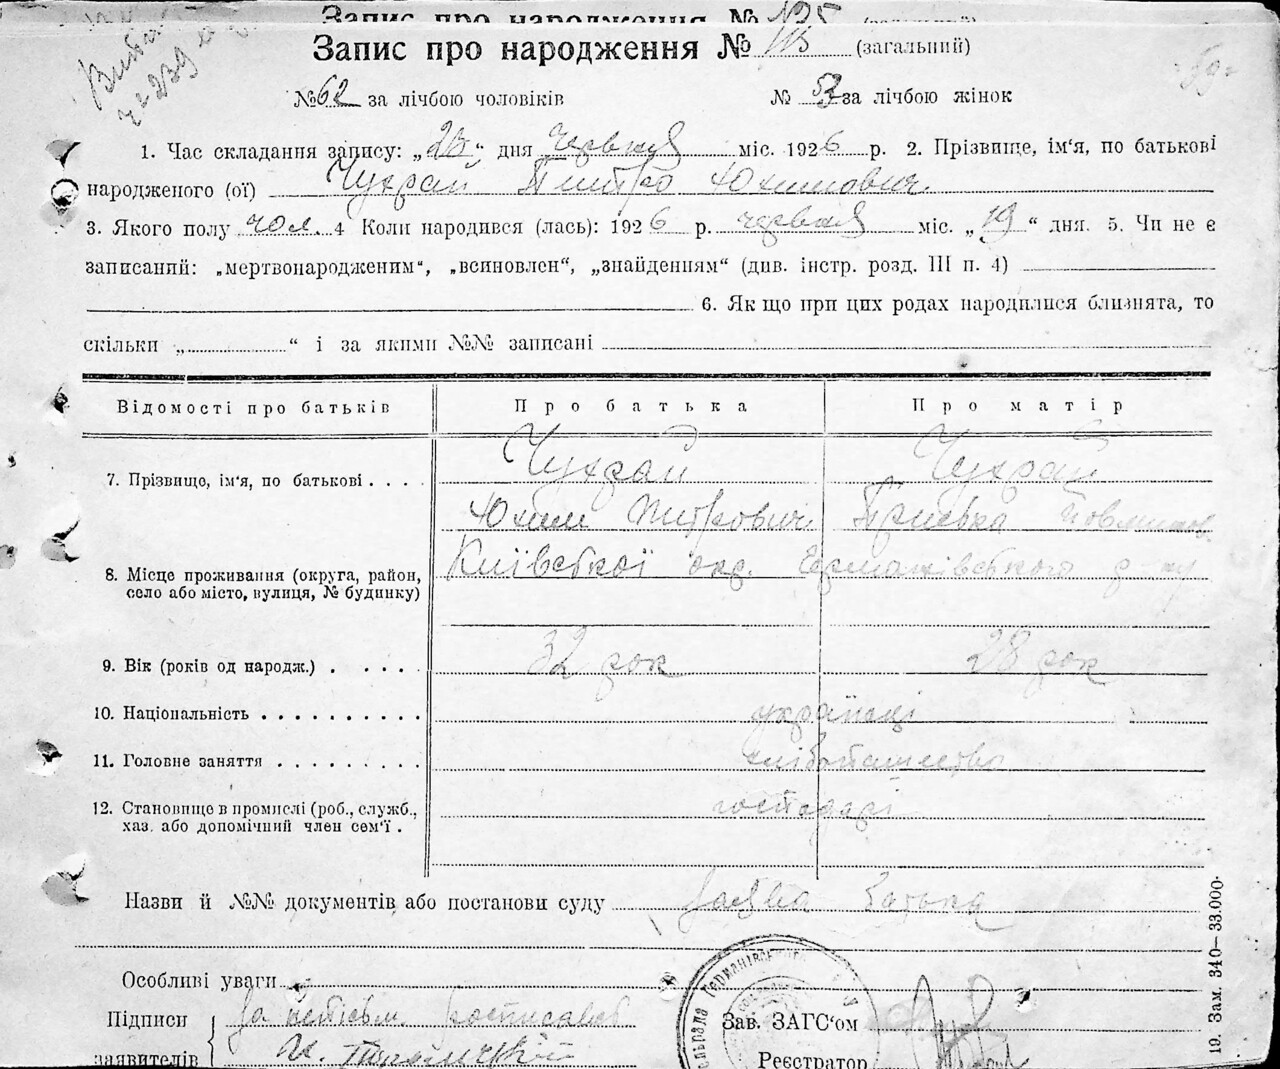 Запис про народження № 125
Запис про народження № (загальний)
№ 62 за лічбою чоловіків № 53 за лічбою жінок
1. Час складання запису: „23“ дня червня міс. 1926 р. 2. Прізвище, ім'я, по батькові
народженого (ої) Чухрай Дмитро Юхимович.
3. Якого полу чол. 4 Коли народився (лась): 1926 р. червня міс. „19“ дня. 5. Чи не є
записаний: „мертвонародженим“, „всиновлен“, „знайденням“ (див. інстр. розд. III п. 4)
6. Як що при цих родах народилися близнята, то
скільки „ “ і за якими №№ записані
Відомості про батьків Про батька Про матір
7. Прізвище, ім'я, по батькові . . . . Чухрай Чухрай
Юхим Дмитрович
8. Місце проживання (округа, район, Київської окр. Германівського р-ну
село або місто, вулиця, № будинку)
9. Вік (років од народж.) . . . . . 32 рок 28 рок
10. Національність . . . . . . . . . . українці
11. Головне заняття . . . . . . . . . хліборобство
12. Становище в промислі (роб., служб., господарі
хаз. або допомічний член сем'ї .
Назви й №№ документів або постанови суду Заява батька
Особливі уваги
Підписи За неписьм. росписався
заявителів
Зав. ЗАГС'ом
Реєстратор
19. Зам. 340–33.000.